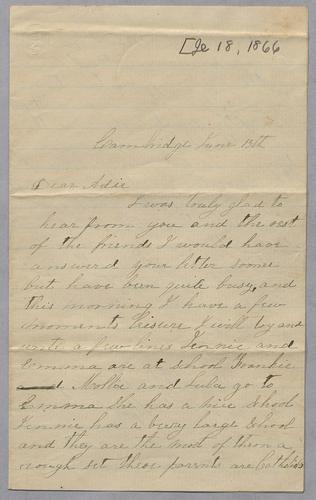 [Je 18, 1866
Cambridge June 18th
Dear Adie
I was truly glad to
hear from you and the rest
of the friends I would have
answerd your letter sooner
but have been quite busy and
this morning I have a few
moments leisure I will try and
write a few lines Jennie and
Emma are at School Frankie
Mollie and Lula go to
Emma She has a nice School
Jennie has a very large School
and they are the most of them a
rough set there parents are Catholics